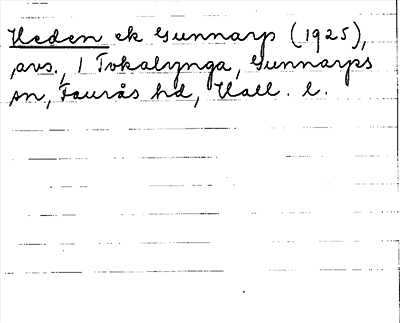 Heden ek Gunnarp (1925),
avs., 1 Tokalynga, Gunnarps
sn, Faurås hd, Hall. l.